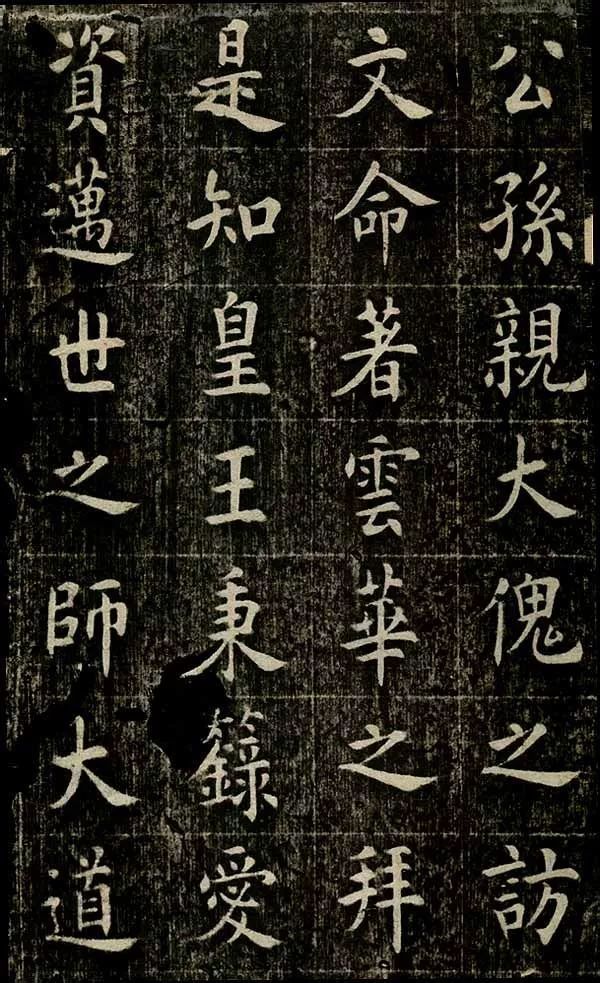 公孫親大傀之訪
文命著雲華之拜
是知皇王秉籙愛
資邁世之師大道